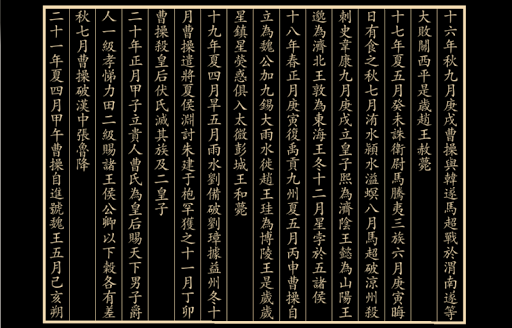 十六年秋九月庚戌曹操與韓遂馬超戰於渭南遂等
大敗關西平是歲趙王赦薨
十七年夏五月癸未誅衛尉馬騰夷三族六月庚寅晦
日有食之秋七月洧水潁水溢螟八月馬超破涼州殺
刺史韋康九月庚戌立皇子熙為濟陰王懿為山陽王
邈為濟北王敦為東海王冬十二月星孛於五諸侯
十八年春正月庚寅復禹貢九州夏五月丙申曹操自
立為魏公加九錫大雨水徙趙王珪為博陵王是歲歲
星鎮星熒惑俱入太微彭城王和薨
十九年夏四月旱五月雨水劉備破劉璋據益州冬十
月曹操遣將夏侯淵討朱建于枹罕獲之十一月丁卯
曹操殺皇后伏氏滅其族及二皇子
二十年正月甲子立貴人曹氏為皇后賜天下男子爵
人一級孝悌力田二級賜諸王侯公卿以下穀各有差
秋七月曹操破漢中張魯降
二十一年夏四月甲午曹操自進號魏王五月己亥朔